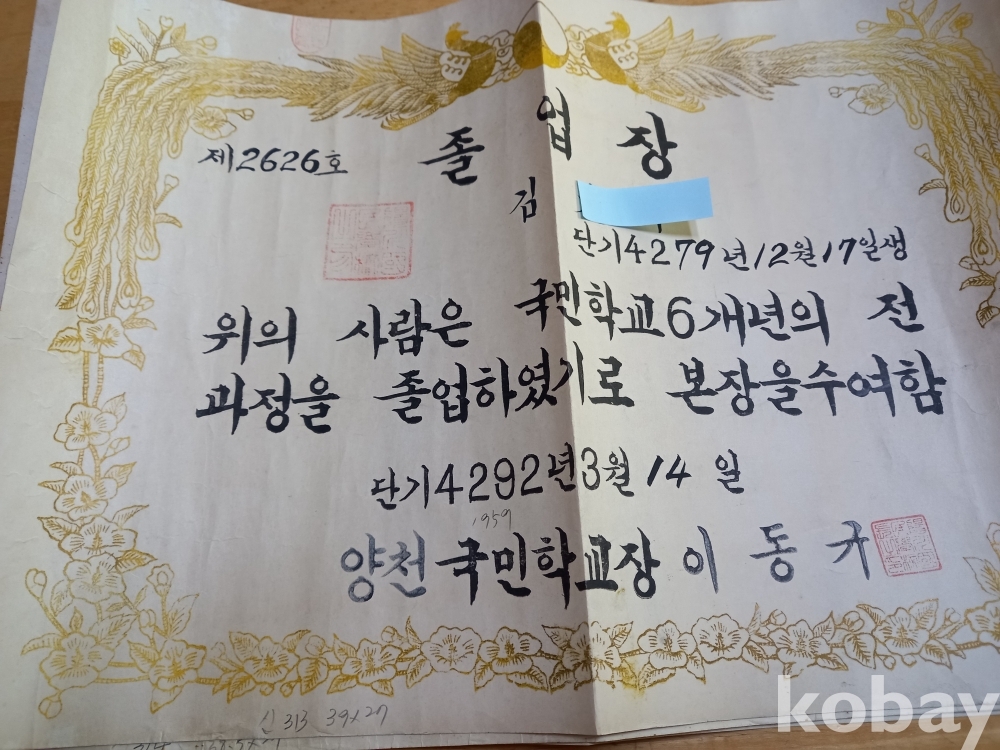 졸업장
제2626호
김
단기4279년12월17일생
위의 사람은 국민학교6개년의 전
과정을 졸업하였기로 본장을수여함
단기4292년3월14일
1959
양천국민학교장 이동규
신 313 39x27
kobay